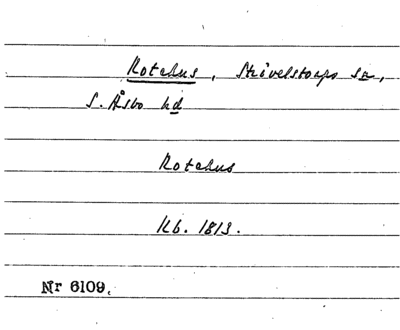 Rotchus, Strövelstorps sn,
S. Åsbo hd
Rotchus
Kb. 1813.
Nr 6109.